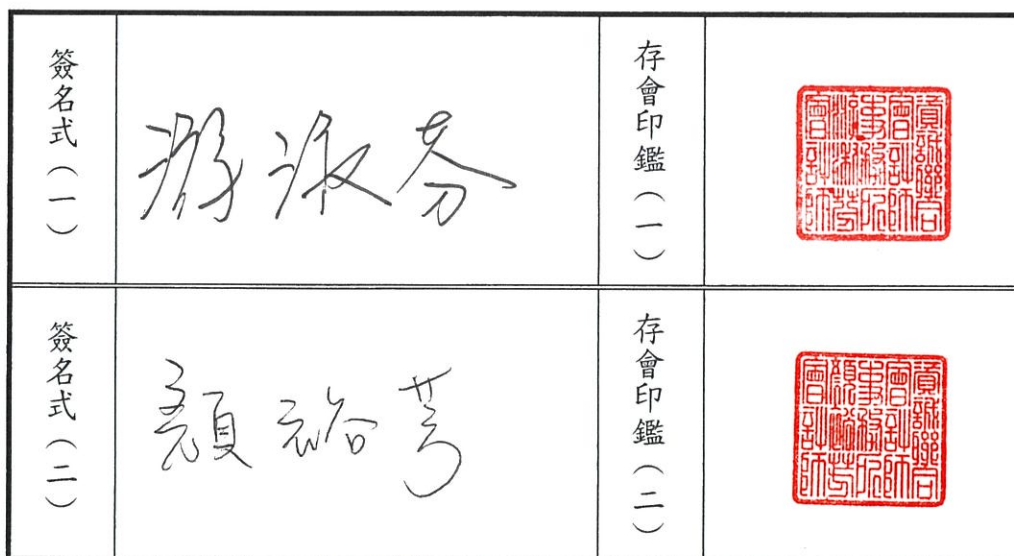 簽名式（一）
游淑芬
存會印鑑（一）
貿誠聯合
會計師
事務所
游淑芬
會計師
簽名式（二）
顏裕芳
存會印鑑（二）
貿誠聯合
會計師
事務所
顏裕芳
會計師